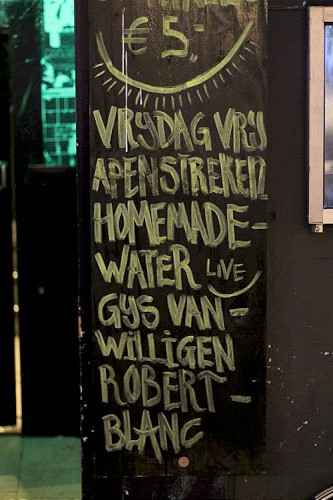 € 5.-
VRYDAG VRY
APENSTREKEN
HOMEMADE-
WATER LIVE
GYS VAN -
WILLIGEN
ROBERT -
BLANC